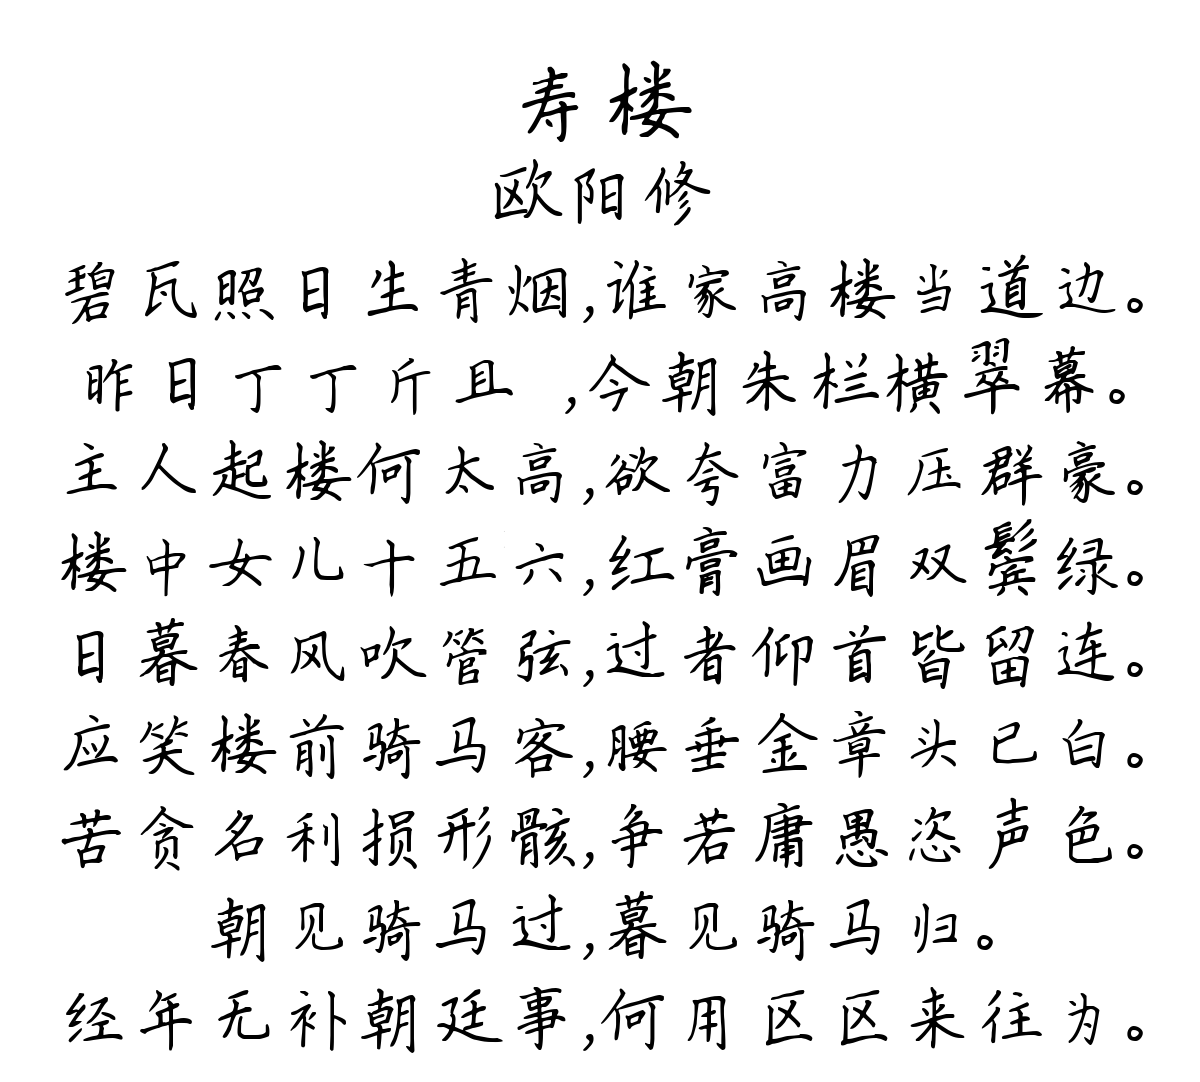 寿楼
欧阳修
碧瓦照日生青烟,谁家高楼当道边。
昨日丁丁斤且 ,今朝朱栏横翠幕。
主人起楼何太高,欲夸富力压群豪。
楼中女儿十五六,红膏画眉双鬓绿。
日暮春风吹管弦,过者仰首皆留连。
应笑楼前骑马客,腰垂金章头已白。
苦贪名利损形骸,争若庸愚恣声色。
朝见骑马过,暮见骑马归。
经年无补朝廷事,何用区区来往为。